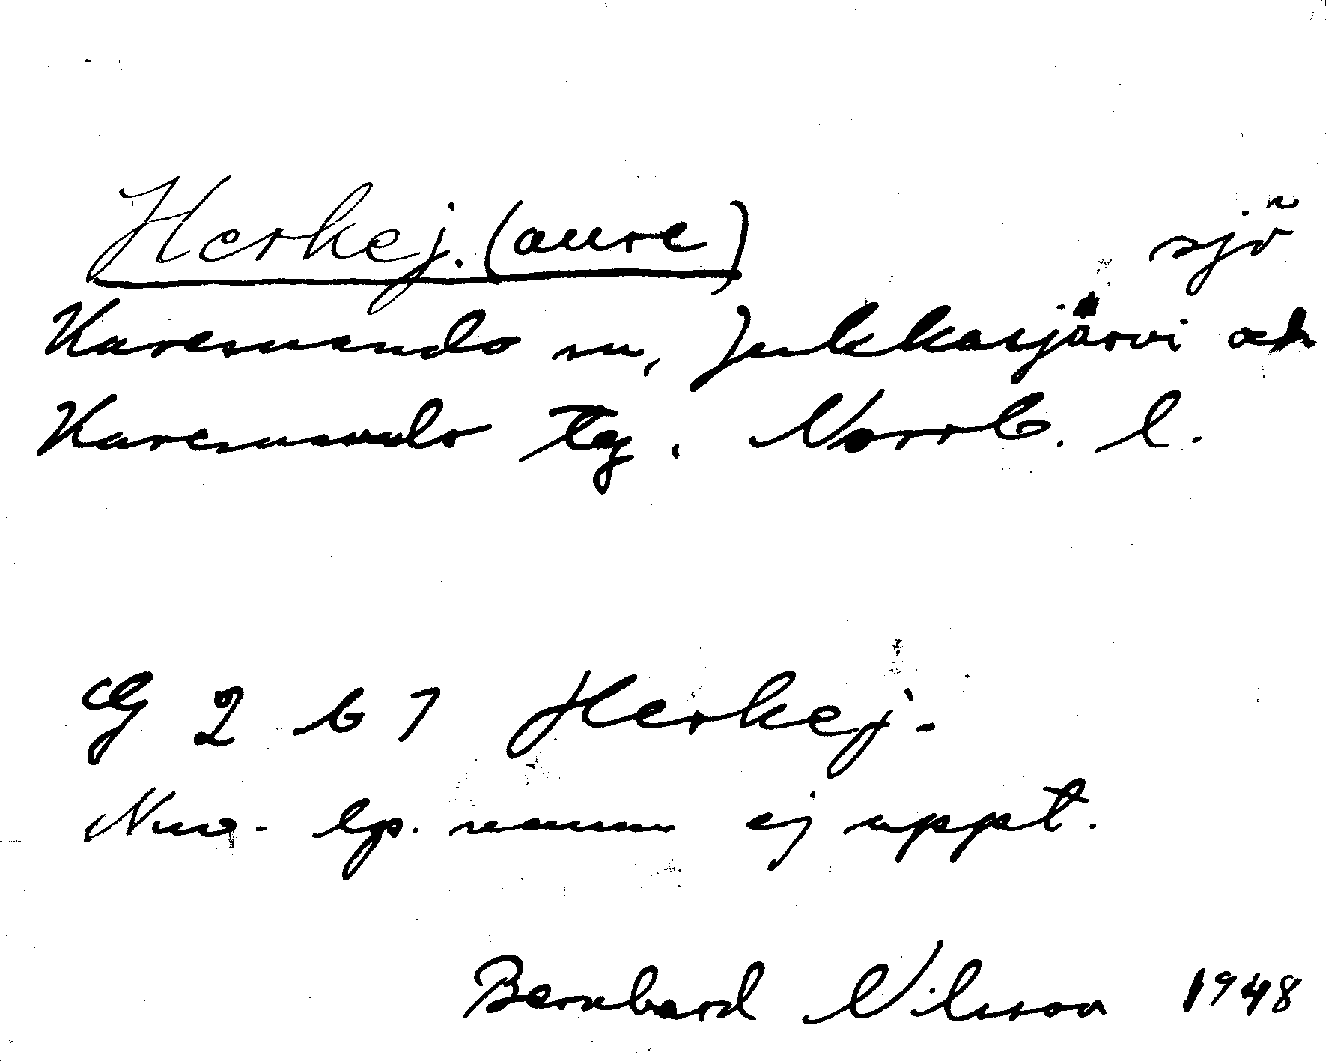 Herkej. (aure) sjö
Karesuando sn, Jukkasjärvi och
Karesuando tg. Norrb. l.
G 2 b 7 Herkej.
Nuv. lp. namn ej uppt.
Bernhard Nilsson 1948